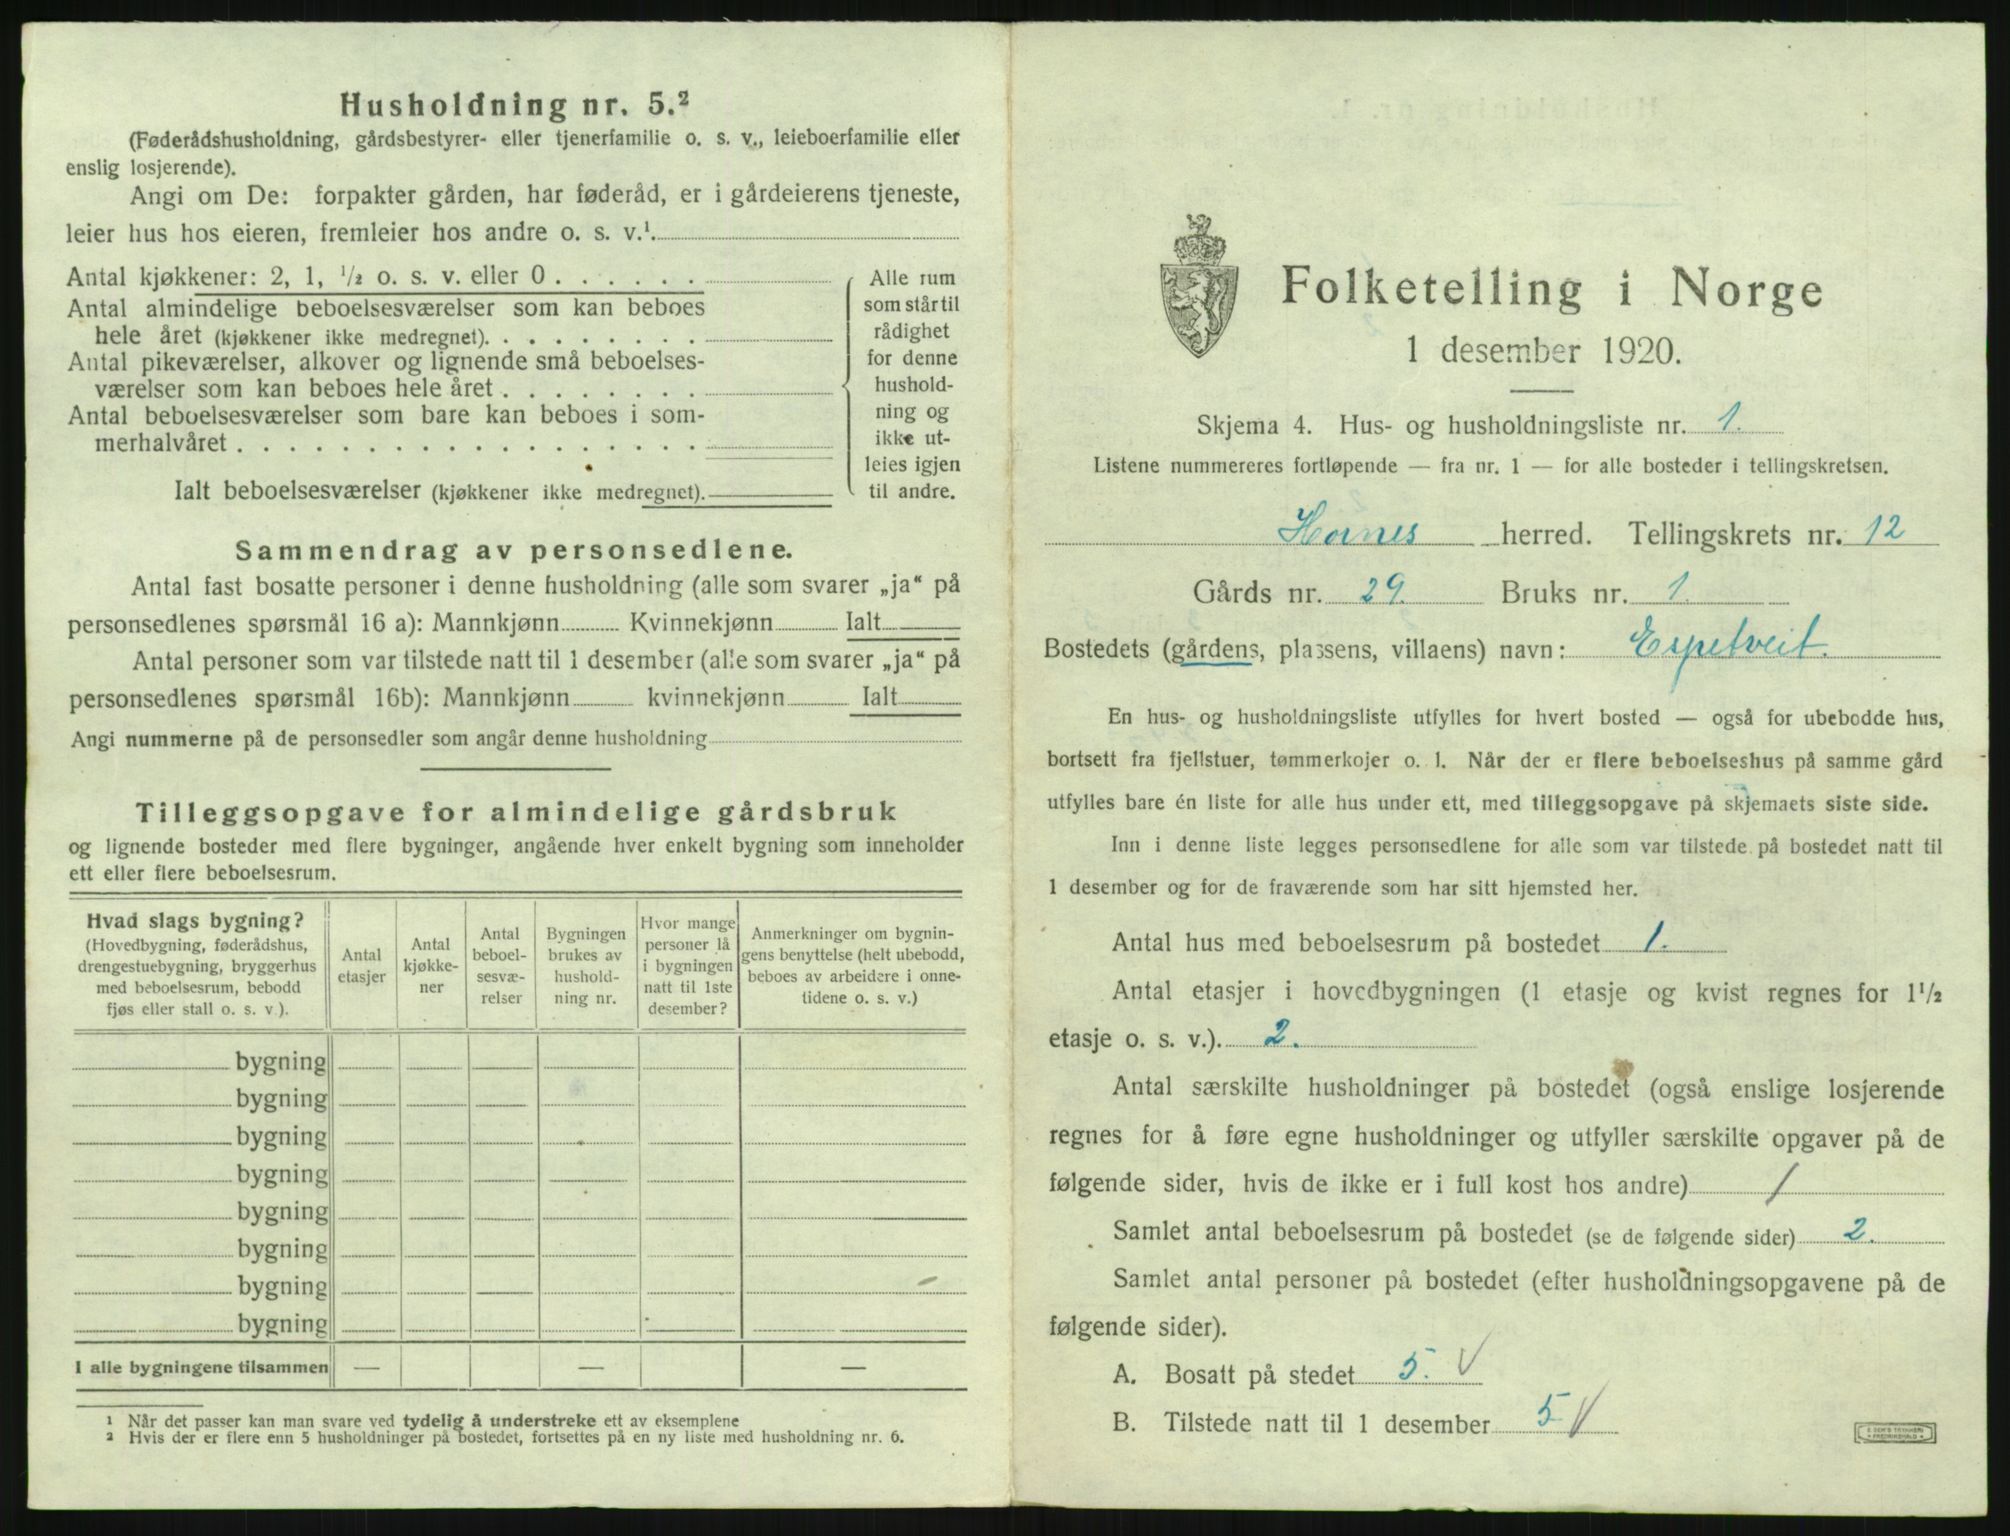 Husholdning nr. 5.²
(Føderådshusholdning, gårdsbestyrer- eller tjenerfamilie o. s. v., leieboerfamilie eller
enslig losjerende).
Angi om De: forpakter gården, har føderåd, er i gårdeierens tjeneste,
leier hus hos eieren, fremleier hos andre o. s. v.¹.
Antal kjøkkener: 2, 1, ½ o. s. v. eller 0 . . . . . .
Antal almindelige beboelsesværelser som kan beboes
hele året (kjøkkener ikke medregnet). . . . . . . . .
Antal pikeværelser, alkover og lignende små beboelses-
værelser som kan beboes hele året . . . . . . . .
Antal beboelsesværelser som bare kan beboes i som-
merhalvåret . . . . . . . . . . . . . . . . . .
Ialt beboelsesværelser (kjøkkener ikke medregnet).
Alle rum
som står til
rådighet
for denne
hushold-
ning og
ikke ut-
leies igjen
til andre.
Sammendrag av personsedlene.
Antal fast bosatte personer i denne husholdning (alle som svarer „ja“ på
personsedlenes spørsmål 16 a): Mannkjønn Kvinnekjønn Ialt
Antal personer som var tilstede natt til 1 desember (alle som svarer „ja“ på
personsedlenes spørsmål 16b): Mannkjønn kvinnekjønn Ialt
Angi nummerne på de personsedler som angår denne husholdning
Tilleggsopgave for almindelige gårdsbruk
og lignende bosteder med flere bygninger, angående hver enkelt bygning som inneholder
ett eller flere beboelsesrum.
Hvad slags bygning?
(Hovedbygning, føderådshus,
drengestuebygning, bryggerhus
med beboelsesrum, bebodd
fjøs eller stall o. s. v.).
Antal
etasjer
Antal
kjøkke-
ner
Antal
beboel-
sesvæ-
relser
Bygningen
brukes av
hushold-
ning nr.
Hvor mange
personer lå
i bygningen
natt til 1ste
desember?
Anmerkninger om bygnin-
gens benyttelse (helt ubebodd,
beboes av arbeidere i onne-
tidene o. s. v.)
bygning
bygning
bygning
bygning
bygning
bygning
bygning
bygning
I alle bygningene tilsammen — — —
¹ Når det passer kan man svare ved tydelig å understreke ett av eksemplene
² Hvis der er flere enn 5 husholdninger på bostedet, fortsettes på en ny liste med husholdning nr. 6.
Folketelling i Norge
1 desember 1920.
Skjema 4. Hus- og husholdningsliste nr. 1.
Listene nummereres fortløpende — fra nr. 1 — for alle bosteder i tellingskretsen.
Hornes herred. Tellingskrets nr. 12
Gårds nr. 29. Bruks nr. 1.
Bostedets (gårdens, plassens, villaens) navn: Espetveit.
En hus- og husholdningsliste utfylles for hvert bosted — også for ubebodde hus,
bortsett fra fjellstuer, tømmerkojer o. l. Når der er flere beboelseshus på samme gård
utfylles bare én liste for alle hus under ett, med tilleggsopgave på skjemaets siste side.
Inn i denne liste legges personsedlene for alle som var tilstede på bostedet natt til
1 desember og for de fraværende som har sitt hjemsted her.
Antal hus med beboelsesrum på bostedet 1.
Antal etasjer i hovedbygningen (1 etasje og kvist regnes for 1½
etasje o. s. v.). 2.
Antal særskilte husholdninger på bostedet (også enslige losjerende
regnes for å føre egne husholdninger og utfyller særskilte opgaver på de
følgende sider, hvis de ikke er i full kost hos andre) 1
Samlet antal beboelsesrum på bostedet (se de følgende sider) 2.
Samlet antal personer på bostedet (efter husholdningsopgavene på de
følgende sider).
A. Bosatt på stedet 5. V
B. Tilstede natt til 1 desember 5 V